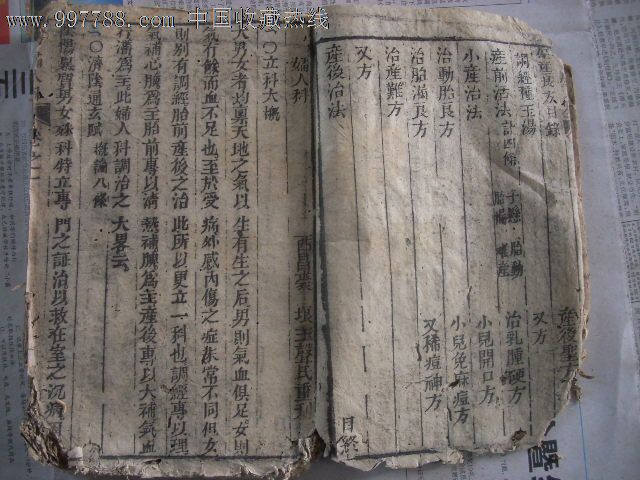 www.997788.com 中国收藏热线
產良方目錄
調經種玉湯
產前治法 計四條 子懸 胎動 胎漏 難產
小產治法
治動胎良方
治胎漏良方
治產難方
又方
產後治法
產後聖方
又方
治乳腫硬方
小兒開口方
小兒免麻痘方
又稀痘神方
目終
婦人科
西昌 重刊
○立科大槪
男女者均稟天地之氣以生有生之后男則氣血俱足女則
氣有餘而血不足也至於受病外感內傷之症亦常不同但女
則別有調經胎前產後之治此所以更立一科也調經專以理
氣補心脾爲主胎前專以清熱補脾爲主產後專以大補氣血
行瀋爲主此婦人科調治之大畧云
○濟陰通玄賦 槪論八條
男女殊科特立專門之証治以救在室之沉